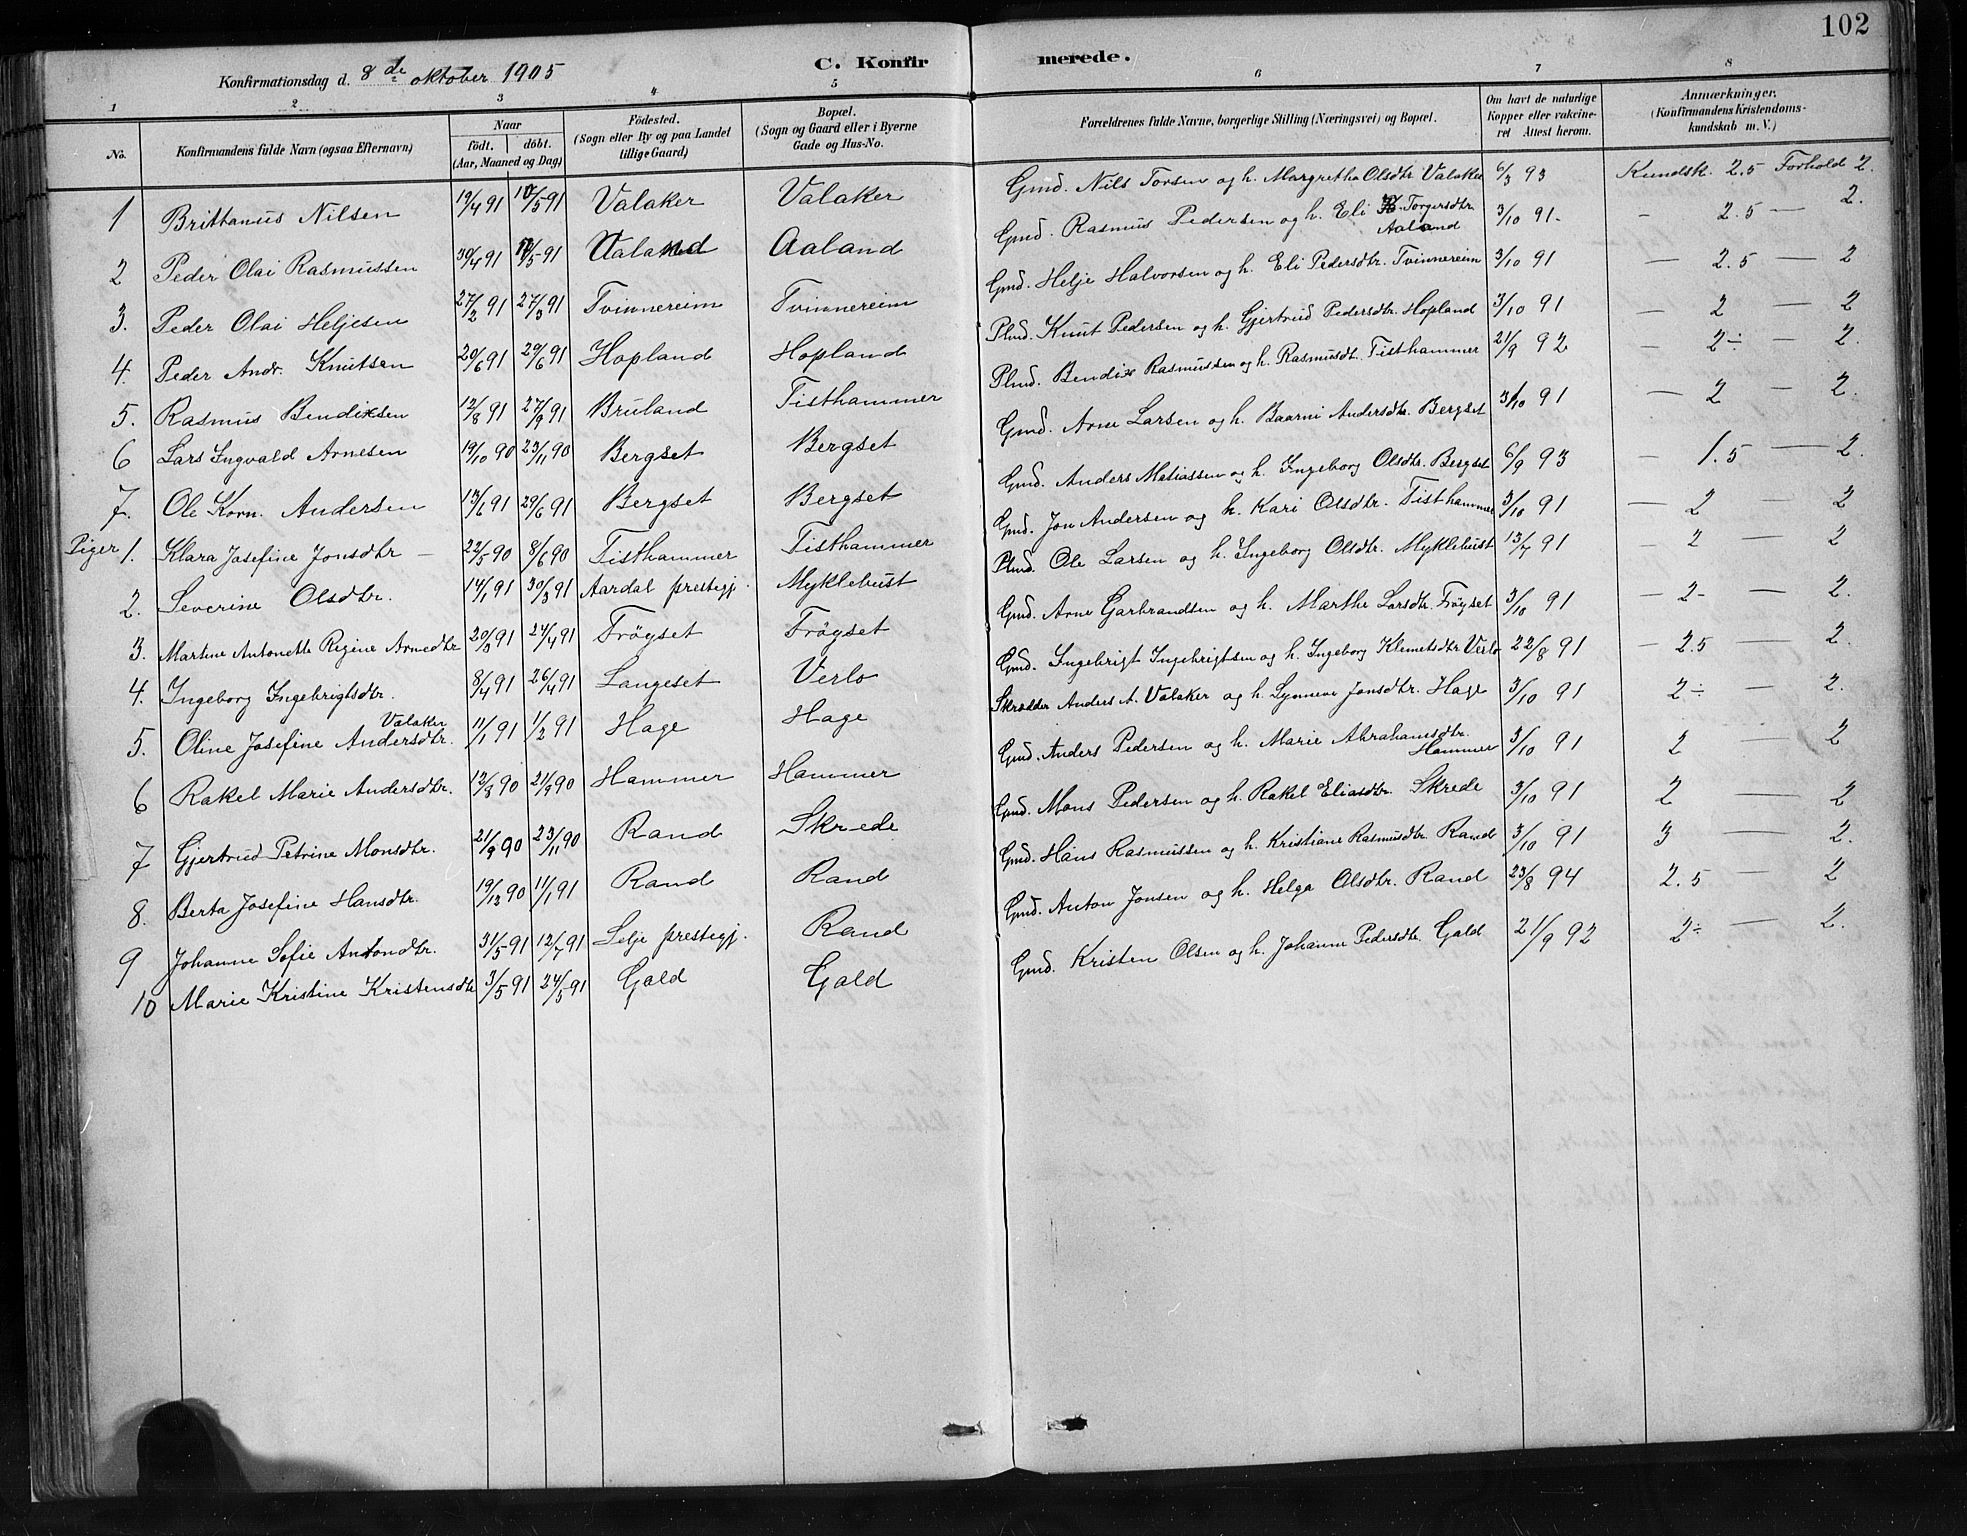 102
Konfirmationsdag d. 8 de oktober 1905
C. Konfirmerede.
1 2 3 4 5 6 7 8
No. Konfirmandens fulde Navn (ogsaa Efternavn) Naar födt. döbt. (Aar, Maaned og Dag) Födested. (Sogn eller By og paa Landet tillige Gaard) Bopæl. (Sogn og Gaard eller i Byerne Gade og Hus-No. Forældrenes fulde Navne, borgerlige Stilling (Næringsvei) og Bopæl. Om havt de naturlige Kopper eller vakcineret Attest herom. Anmærkninger. (Konfirmandens Kristendomskundskab m. V.)
1 Brittanus Nilsen 19/4 91 10/5 91 Valaker Valaker Gmd. Nils Torsen og h. Margretha Olsdtr Valaker 6/3 93 Kundsk. 2.5 Forhold 2.
2 Peder Olai Rasmussen 30/4 91 17/5 91 Aaland Gmd. Rasmus Pedersen og h. Eli Torgersdtr Aaland 3/10 91 - 2.5 — 2.
3. Peder Olai Heljesen 27/2 91 27/3 91 Tvinnereim Tvinnereim Gmd. Helje Halvorsen og h. Eli Pedersdtr. Tvinnereim 3/10 91 — 2.5 — 2
4. Peder Andr. Knutsen 20/6 91 29/6 91 Hopland Hopland Plmd. Knut Pedersen og h. Gjertrud Pedersdtr. Hopland 3/10 91 - 2 — 2
5. Rasmus Bendiksen 12/8 91 27/9 91 Bruland Tisthammer Plmd. Bendix Rasmussen og h. Rasmusdt. Tisthammer 21/9 92 - 2÷ - 2.
6 Lars Ingvald Arnesen 19/10 90 23/11 90 Bergset Bergset Gmd. Arne Larsen og h. Baarni Andersdtr. Bergset 3/10 91 — 2 - 2.
7. Ole Korn. Andersen 13/6 91 29/6 91 Bergset Bergset Gmd. Anders Matiassen og h. Ingeborg Olsdtr. Bergset 6/9 93 - 1.5 — 2.
Piger 1. Klara Josefine Jonsdtr — 22/5 90 8/6 90 Tisthammer Tisthammer Gmd. Jon Andersen og h. Kari Olsdtr. Tisthammer 3/10 91 — 2 — 2
2. Severine Olsdtr. 14/1 91 30/3 91 Aardal prestegj. Myklebust Plmd. Ole Larsen og h. Ingeborg Olsdtr. Myklebust 13/7 91 — 2 — 2
3. Martine Antonette Regine Arnedtr 20/3 91 24/4 91 Fröyset Fröyset Gmd. Arne Garbrandsen og h. Marthe Larsdtr. Fröyset 3/10 91 - 2- — 2.
4. Ingeborg Ingebrigtsdtr. 8/4 91 26/4 91 Langeset Verlo Gmd. Ingebrigt Ingebrigtsen og h. Ingeborg Klemetsdtr Verlo 22/8 91 - 2.5 — 2.
5. Oline Josefine Andersdtr. Valaker 11/1 91 1/2 91 Hage Hage Skrædder Anders A. Valaker og h. Synneve Jonsdtr. Hage 3/10 91 2÷ - 2.
6 Rakel Marie Andersdtr. 12/8 90 21/9 90 Hammer Hammer Gmd. Anders Pedersen og h. Marie Abrahamsdtr. Hammer 3/10 91 2 — 2
7 Gjertrud Petrine Monsdtr. 21/9 90 23/11 90 Rand Skrede Gmd. Mons Pedersen og h. Rakel Eliasdtr. Skrede 3/10 91 2 — 2
8. Berta Josefine Hansdtr. 19/12 90 11/1 91 Rand Rand Gmd. Hans Rasmussen og h. Kristiane Rasmusdtr. Rand 3/10 91 3 — 2.
9 Johanne Sofie Antondtr. 31/5 91 12/7 91 Selje prestegj. Rand Gmd. Anton Jonsen og h. Helga Olsdtr. Rand 23/8 94 2.5 — 2
10 Marie Kristine Kristensdtr 3/5 91 24/5 91 Gald Gald Gmd. Kristen Olsen og h. Johanne Pedersdtr. Gald 21/9 92 2÷ — 2.